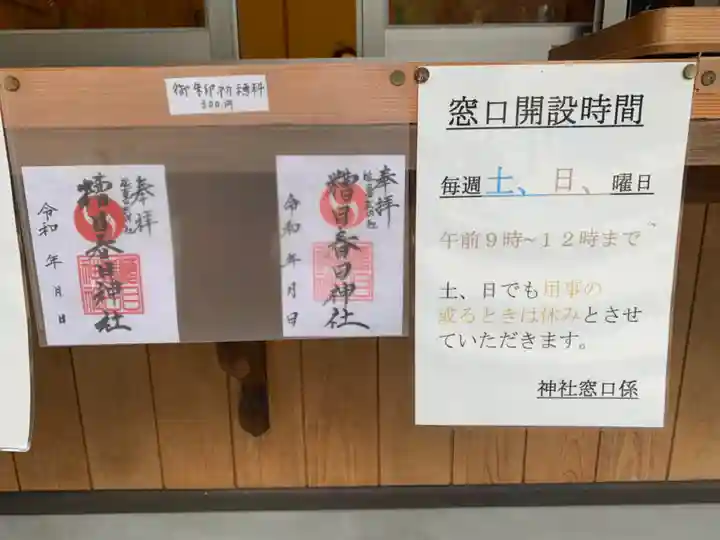 御朱印初穂料
500円
奉拝
糟目春日神社
令和 年 月 日
奉拝
糟目春日神社
令和 年 月 日
窓口開設時間
毎週土、日、曜日
午前9時~12時まで
土、日でも用事の
或るときは休みとさせ
ていただきます。
神社窓口係